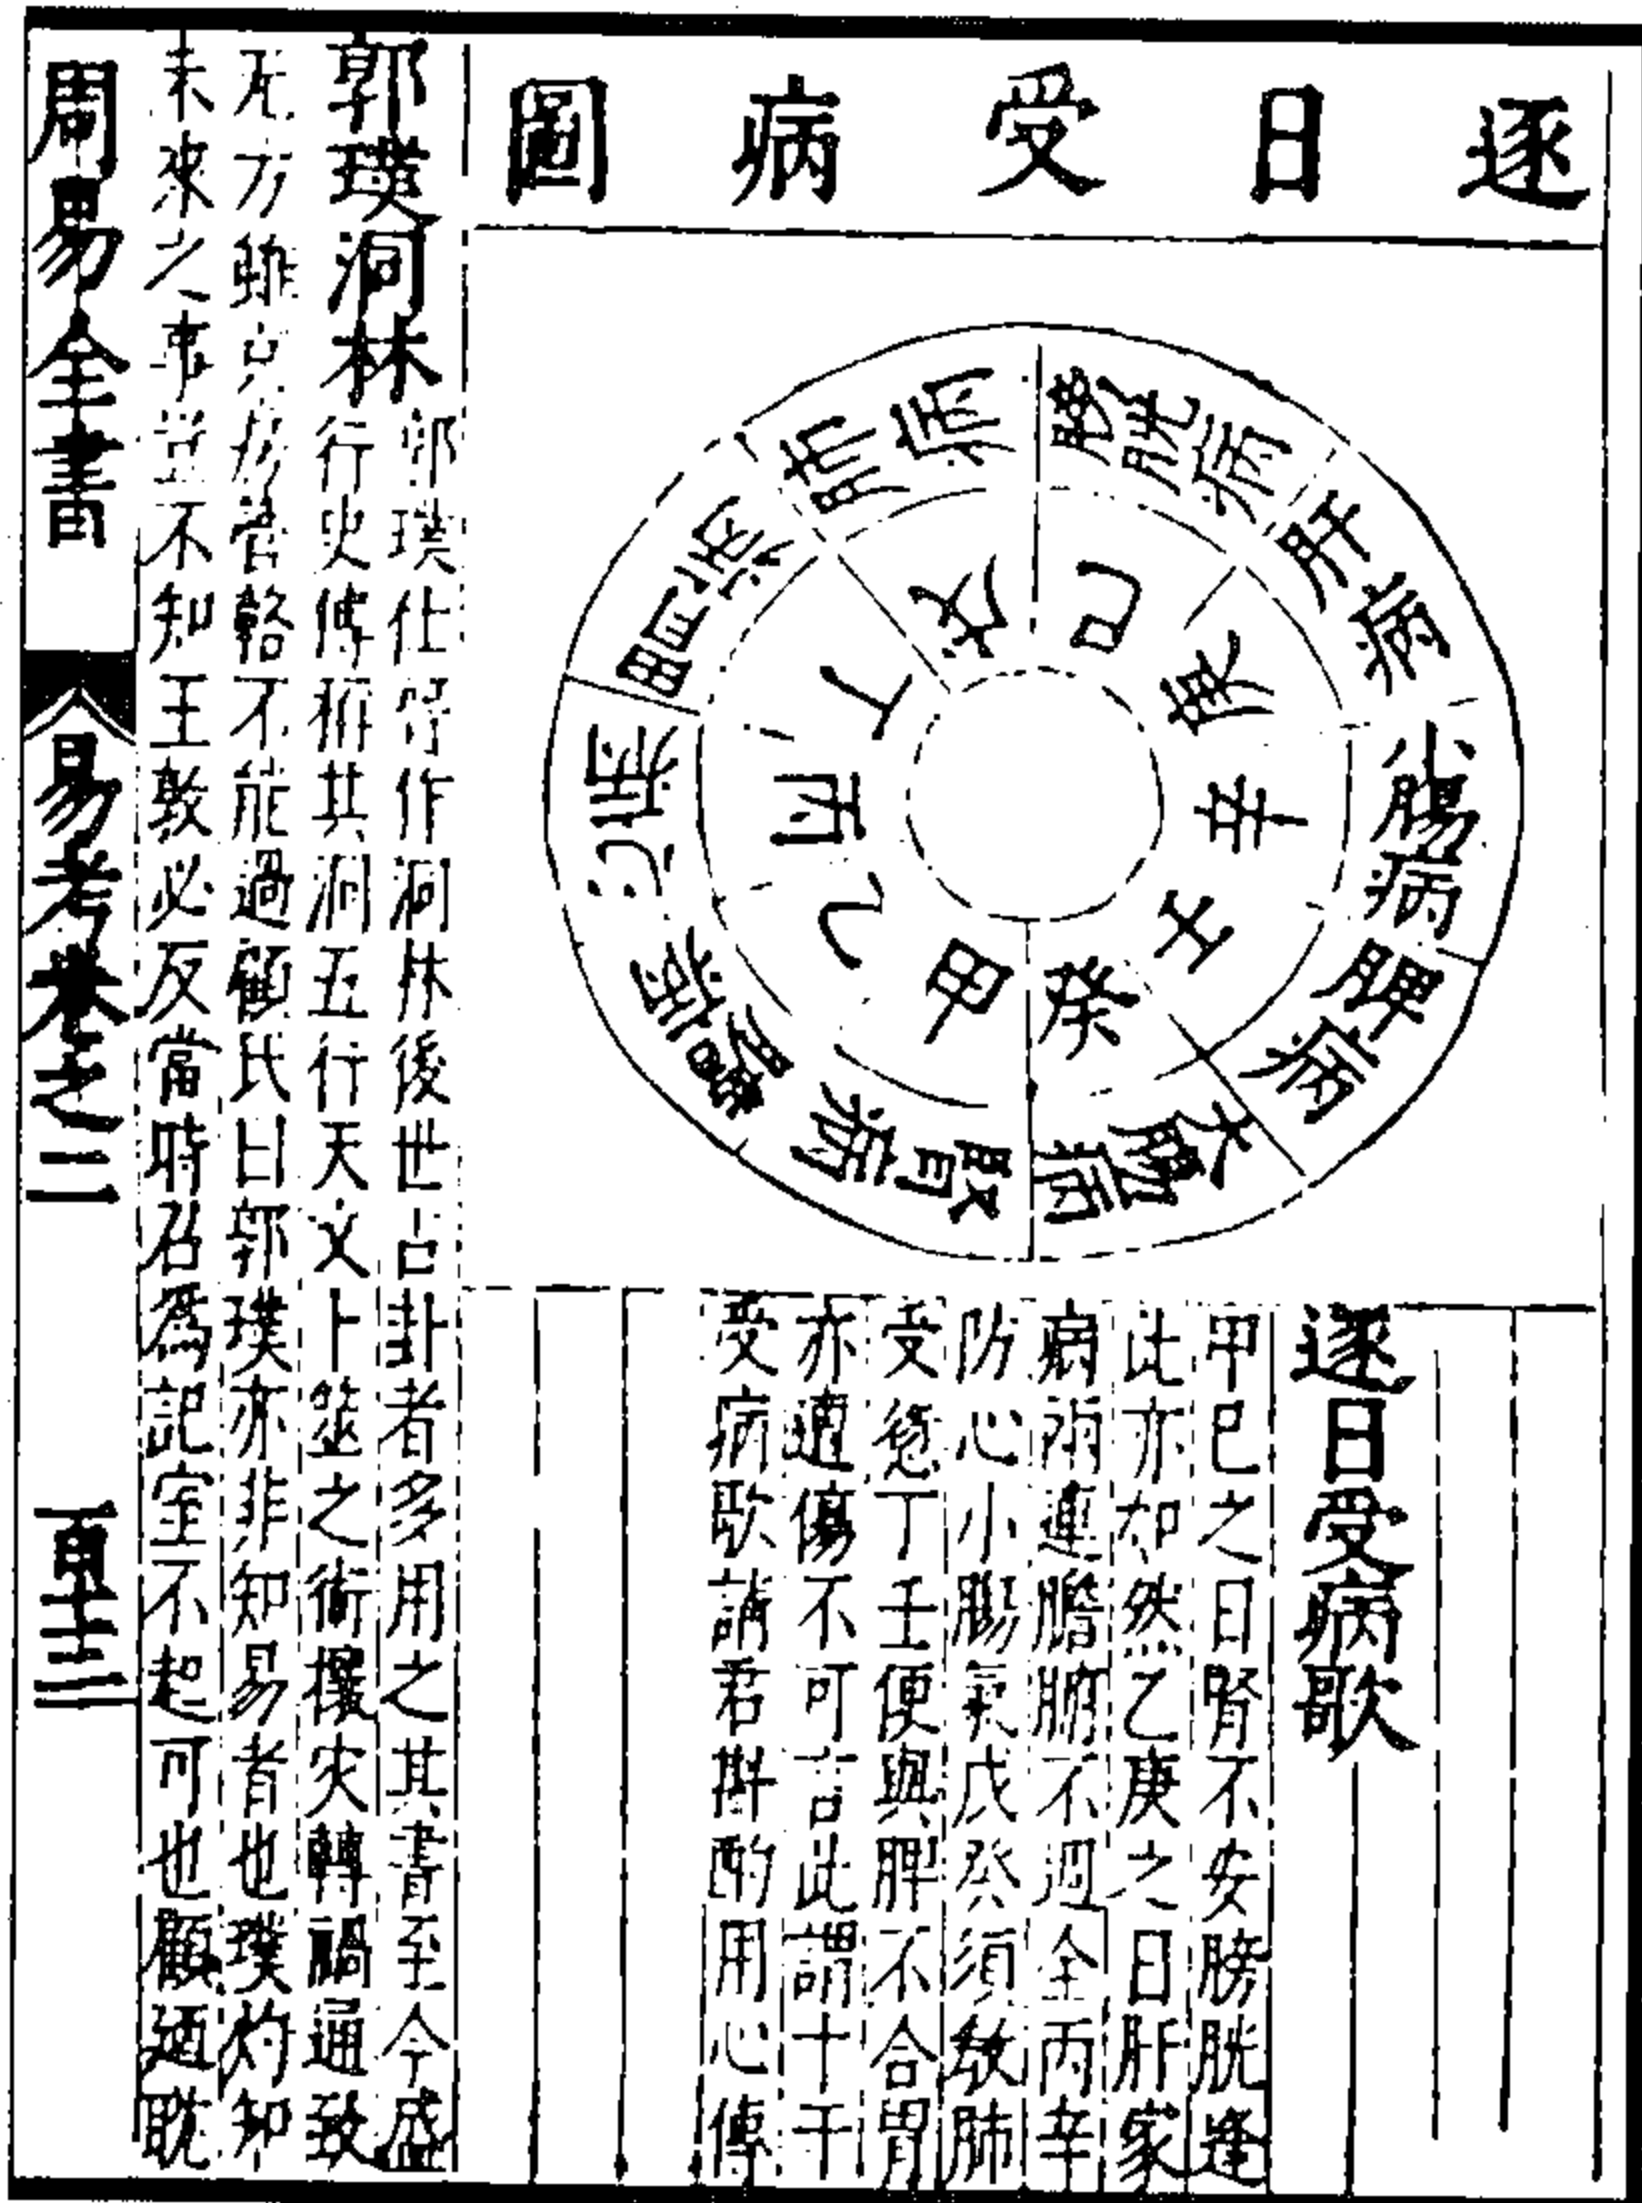 逐日受病圖
己 膀胱病
庚 肝病
辛 小腸病
壬 脾病
癸 大腸病
甲 腎病
乙
丙 心病
丁 胃病
戊 肺病
逐日受病歌
甲巳之日腎不安膀胱逢
此亦如然乙庚之日肝家
病兩連膽腑不週全丙辛
防心小腸氣戊癸須教肺
受愆丁壬便與脾不合胃
亦遭傷不可言此謂十干
受病歌請君斟酌用心傳
郭璞洞林
郭璞仕晉作洞林後世占卦者多用之其書至今盛
行史傳稱其洞五行天文卜筮之術攘灾轉禍通致
无方雖京房管輅不能過顧氏曰郭璞亦非知易者也璞灼知
未來之事豈不知王敦必反當時召為記室不起可也顧廼眈
周易全書
易考卷之二
百十三